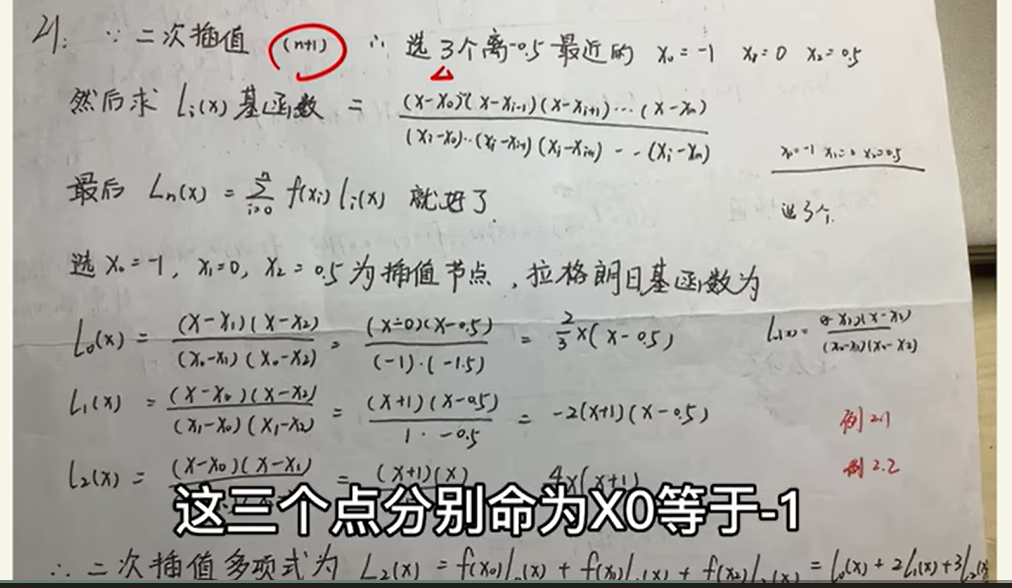 21: ∵ 二次插值 (n+1) ∴ 选3个离-0.5最近的 x₀=-1 x₁=0 x₂=0.5
然后求 Lᵢ(x)基函数 = (x-x₀)(x-xᵢ₋₁)(x-xᵢ₊₁)…(x-xₙ)
(xᵢ-x₀)…(xᵢ-xᵢ₋₁)(xᵢ-xᵢ₊₁)--(xᵢ-xₙ)
x₀=-1 x₁=0 x₂=0.5
最后 Lₙ(x) = Σⁿᵢ₌₀ f(xᵢ)lᵢ(x) 就好了.
选3个.
选 x₀=-1, x₁=0, x₂=0.5 为插值节点, 拉格朗日基函数为
L₀(x) = (x-x₁)(x-x₂) / (x₀-x₁)(x₀-x₂) = (x-0)(x-0.5) / (-1)·(-1.5) = 2/3 x(x-0.5)
L₁(x) = (x-x₀)(x-x₂) / (x₁-x₀)(x₁-x₂) = (x+1)(x-0.5) / 1·-0.5 = -2(x+1)(x-0.5)
例2.1
L₂(x) = (x-x₀)(x-x₁) = (x+1)(x) 4x(x+1)
例2.2
这三个点分别命为X0等于-1
∴ 二次插值多项式为 L₂(x) = f(x₀)l₀(x) + f(x₁)l₁(x) + f(x₂)l₂(x) = l₀(x) + 2l₁(x) + 3l₂(x)